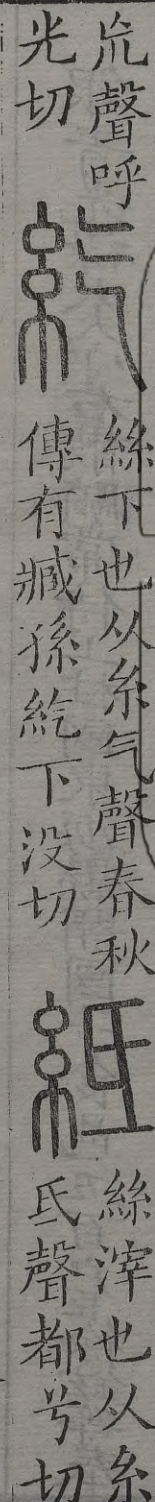 巟聲呼
光切
紇
絲下也从糸气聲春秋
傳有臧孫紇下没切
𥿄
絲滓也从糸
氐聲都兮切